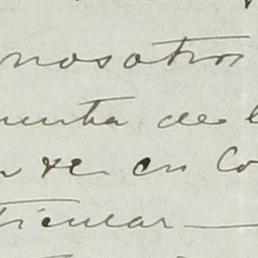 nosotros
uenta de l
en Co
ticular —